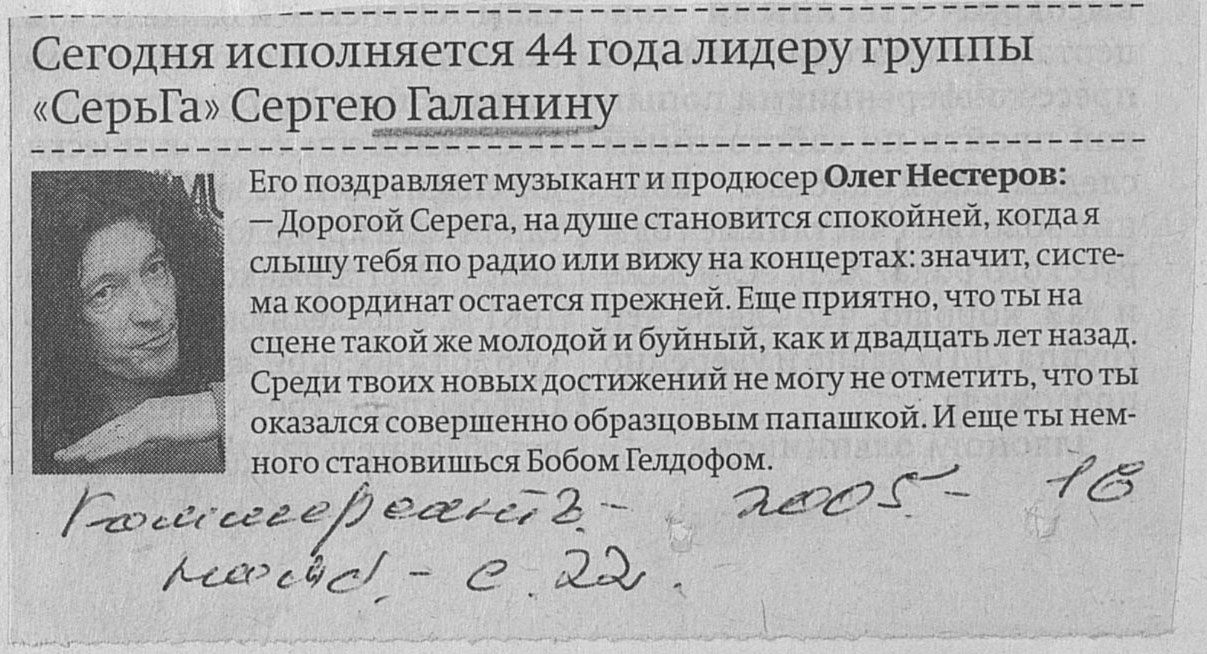 Сегодня исполняется 44 года лидеру группы
«СерьГа» Сергею Галанину
Его поздравляет музыкант и продюсер Олег Нестеров:
— Дорогой Серега, на душе становится спокойней, когда я
слышу тебя по радио или вижу на концертах: значит, систе-
ма координат остается прежней. Еще приятно, что ты на
сцене такой же молодой и буйный, как и двадцать лет назад.
Среди твоих новых достижений не могу не отметить, что ты
оказался совершенно образцовым папашкой. И еще ты нем-
ного становишься Бобом Гелдофом.
Коммерсантъ. - 2005. - 16
нояб. - с. 22.